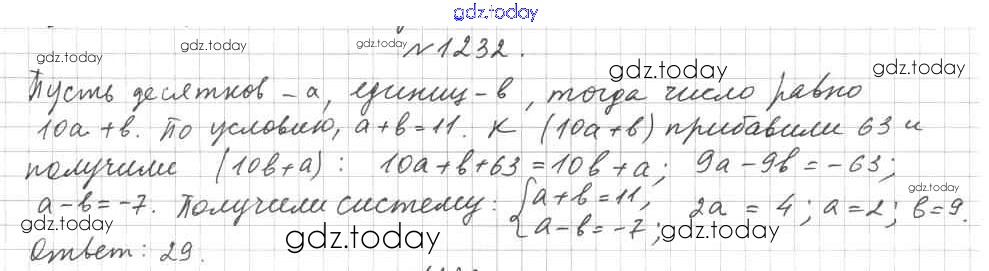 gdz.today
gdz.today gdz.today №1232. gdz.today gdz.today
Пусть десятков - а, единиц - в, тогда число равно
10а + в. По условию, а + в = 11. К (10а + в) прибавили 63 и
получили (10в + а) : 10а + в + 63 = 10в + а ; 9а - 9в = - 63 ;
а - в = - 7. Получили систему : { а + в = 11, а - в = - 7 ; 2а = 4 ; а = 2 ; в = 9. gdz.today
gdz.today gdz.today gdz.today
Ответ : 29.